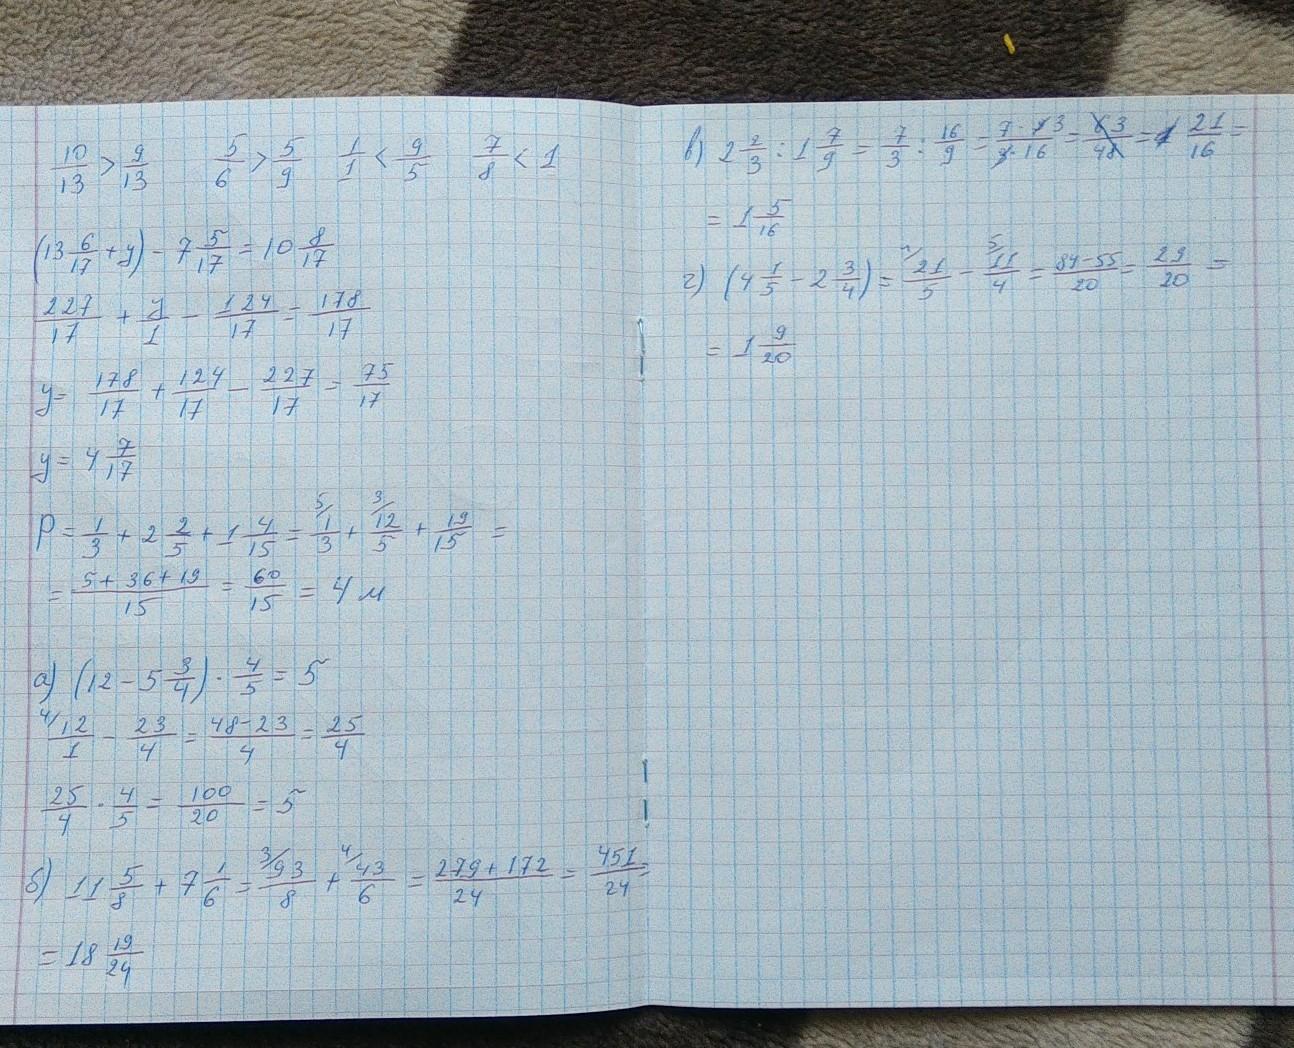 10/13 > 9/13   5/6 > 5/9   1/1 < 9/5   7/8 < 1
(13 6/17 + y) - 7 5/17 = 10 8/17
227/17 + y/1 - 124/17 = 178/17
y = 178/17 + 124/17 - 227/17 = 75/17
y = 4 7/17
P = 1/3 + 2 2/5 + 1 4/15 = 5/ 1/3 + 3/ 12/5 + 19/15 =
= (5+36+19)/15 = 60/15 = 4 м
а) (12 - 5 3/4) · 4/5 = 5
4/ 12/1 - 23/4 = (48-23)/4 = 25/4
25/4 · 4/5 = 100/20 = 5
б) 11 5/8 + 7 1/6 = 3/ 93/8 + 4/ 43/6 = (279+172)/24 = 451/24 =
= 18 19/24
в) 2 2/3 : 1 7/9 = 7/3 : 16/9 = (7·9 3)/(3·16) = 63/48 = 21/16 =
= 1 5/16
г) (4 1/5 - 2 3/4) = 4/ 21/5 - 5/ 11/4 = (84-55)/20 = 29/20 =
= 1 9/20